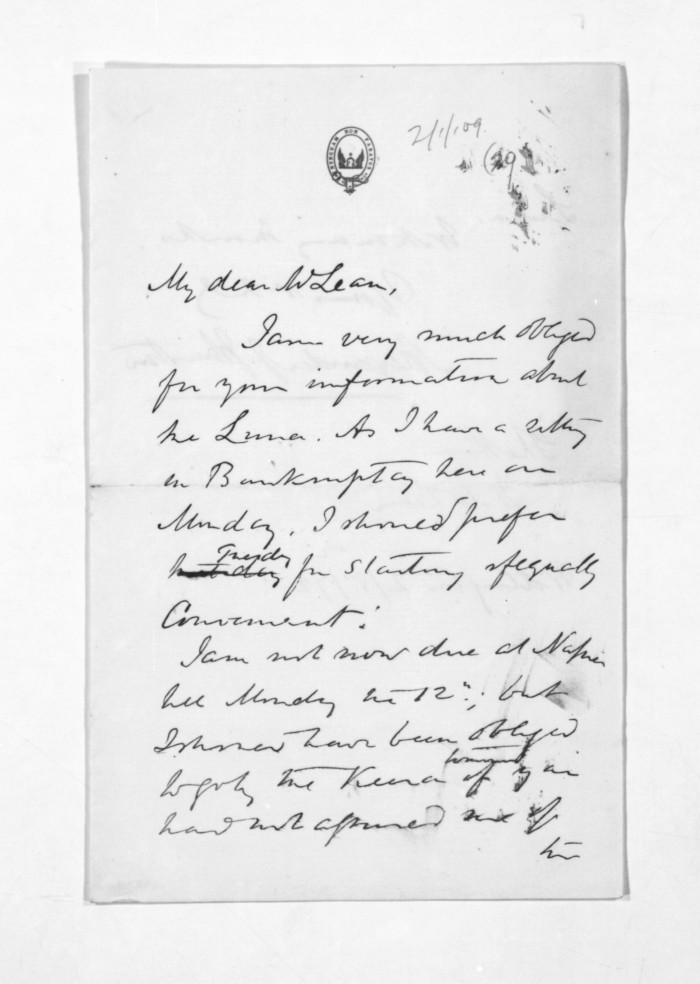 2/1/09
My dear McLean,
I am very much obliged
for your information about
the Luna. As I have a sitting
in Bankruptcy here on
Monday, I should prefer
Tuesday for starting if equally
Convenient.
I am not now due at Napier
till Monday the 12th; but
I should have been obliged
to go by the Keera tomorrow if you
had not assured me of
the